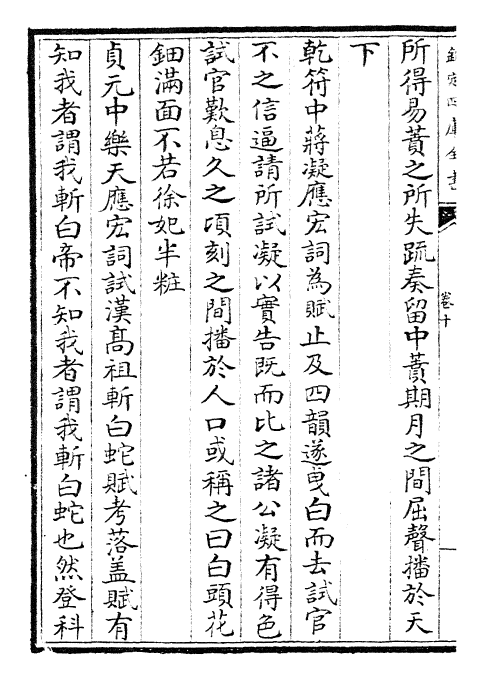 欽定四庫全書
卷十
所得易蕡之所失疏奏留中蕡期月之間屈聲播於天
下
乾符中蔣凝應宏詞為賦止及四韻遂曵白而去試官
不之信逼請所試凝以實告既而比之諸公凝有得色
試官歎息久之頃刻之間播於人口或稱之曰白頭花
鈿滿面不若徐妃半粧
貞元中樂天應宏詞試漢髙祖斬白蛇賦考落盖賦有
知我者謂我斬白帝不知我者謂我斬白蛇也然登科